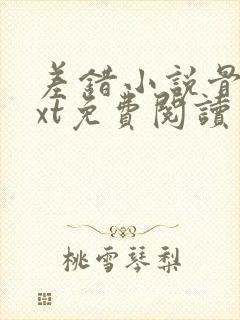 差錯小説景
xt免費閱讀
桃雪琴梨